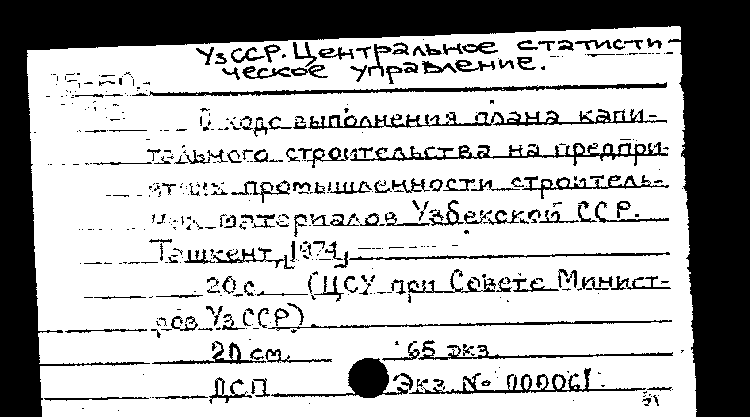 УзССР. Центральное статисти-
ческое управление.
О ходе выполнения плана капи-
тального строительства на предпри-
ятиях промышленности строитель-
ных материалов Узбекской ССР.
Ташкент, [1974]
20 с. (ЦСУ при Совете Минист-
ров УзССР).
20 см. 65 экз.
ДСП Экз. № 000061.